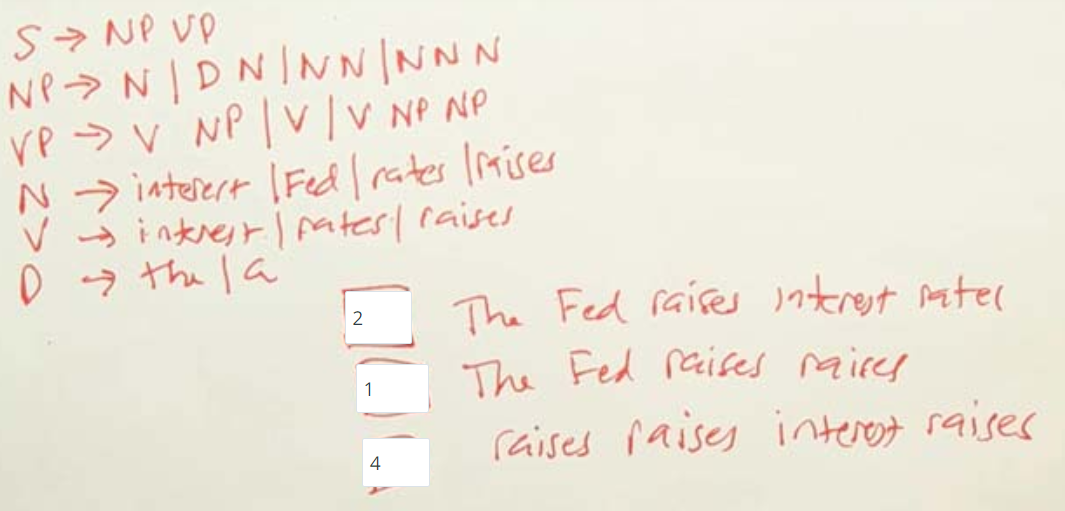 S → NP VP
NP → N | D N | N N | N N N
VP → V NP | V | V NP NP
N → interest | Fed | rates | raises
V → interest | rates | raises
D → the | a
2 The Fed raises interest rates
1 The Fed raises raises
4 raises raises interest raises